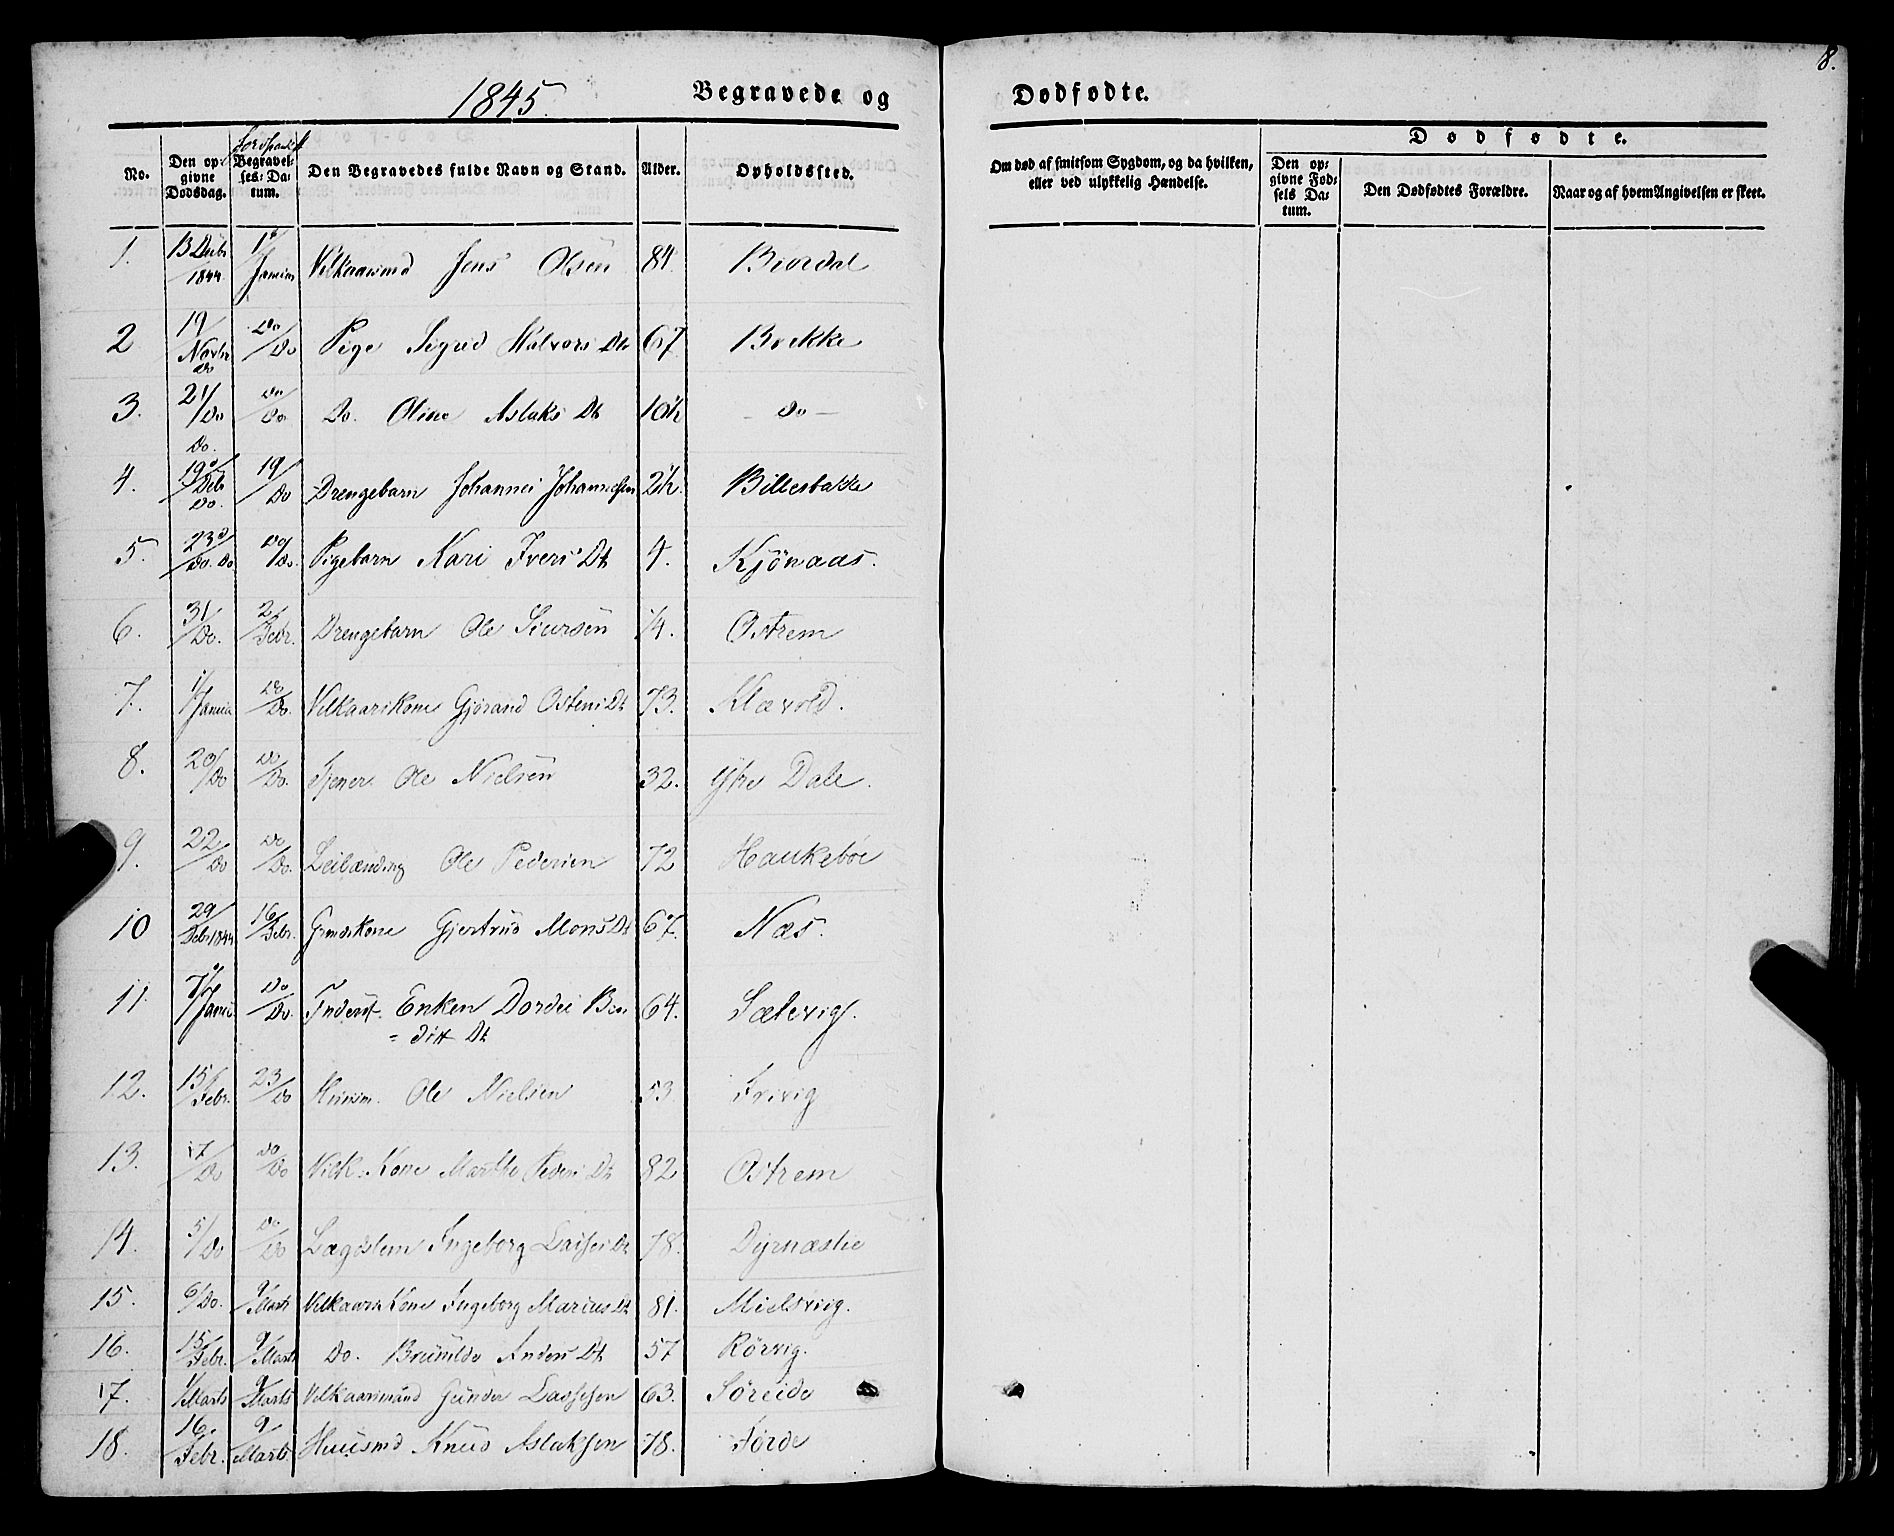 8.
1845. Begravede og Dødfødte.
No.
Den opgivne Dødsdag.
Begravelses-Datum.
Den Begravedes fulde Navn og Stand.
Alder.
Opholdssted.
Om død af smitsom Sygdom, og da hvilken, eller ved ulykkelig Hændelse.
Dødfødte.
Den opgivne Fødsels Datum.
Den Dødfødtes Forældre.
Naar og af hvem Angivelsen er skeet.
1. 13 Decbr 1844 Vilkaarsmd Jens Olsen 84. Biørdal
2 19/Novbr Do Do/Do Pige Sigrid Halvors Dtr 67 Brekke
3. 21/Do Do. Do/Do Do. Oline Aslaks Dt 10½ - Do -
4. 19/Debr Do. 19/Do Drengebarn Johannes Johannessen 2½. Billesbakke
5. 23/Do. Do Do/Do. Pigebarn Kari Ivers Dt 4. Kjönaas.
6. 31/Do. 2/Febr. Drengebarn Ole Siursen ¼. Ostrem
7. 1/Januar Do/Do. Vilkaarskone Gjørand Ostens Dt 73. Klævold.
8. 20/Do Do/Do. Tjener Ole Nielsen 32. Ytre Dale.
9. 22/Do Do/Do. Leilænding Ole Pedersen 72 Haukebøe
10 29/Febr 1844 16/Febr. Gmdskone Gjertrud Mons Dt 67. Næs.
11. 7/Januar Do/Do. Inderst. Enken Dordei Ben
= ditt Dt 64. Sælevig.
12. 15/Febr. 23/Do Huusm. Ole Nielsen 53. Frivig
13. 17/Do Do/Do Vilk. Kone Marthe Peders Dt 82 Ostrem
14. 5/Do Do/Do Lægdslem Ingeborg Lasses Dt 78. Dyrnæslie
15. 6/Do. 9/Marts Vilkaars Kone Ingeborg Marius Dt 81. Mielsvig.
16. 15/Febr. 9/Marts Do. Brunilde Anders Dt 57 Rörvig.
17. 1/Marts 9/Marts Vilkaarsmand Gunder Lassesen 63. Søreide
18. 16./Febr. 9/Marts Huusmd Knud Aslaksen 78. Førde